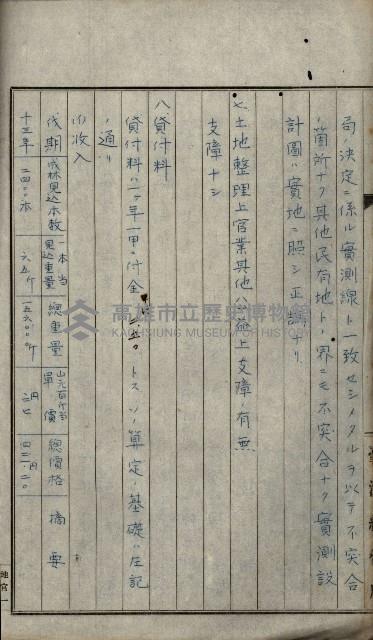 局ノ決定ニ係ル實測線ト一致セシメタルヲ以テ不突合
ノ箇所ナク其他民有地トノ界ニモ不突合ナク實測設
計圖ハ實地ニ照シ正確ナリ
七、土地整理上官業其他ノ公益上支障ノ有無
支障ナシ
八貸付料
貸付料ハ一ケ年一甲ニ付金
トスソノ算定ノ基礎ハ左記
ノ通リ
(1)收入
伐期 成林見込本數 一本當見込重量 總重量 山元百斤當單價 總價格 摘要
十三年 二四〇〇本 六五斤 一五六〇〇〇斤
高雄市立歷史博物館
KAOHSIUNG MUSEUM OF HISTORY
地官一